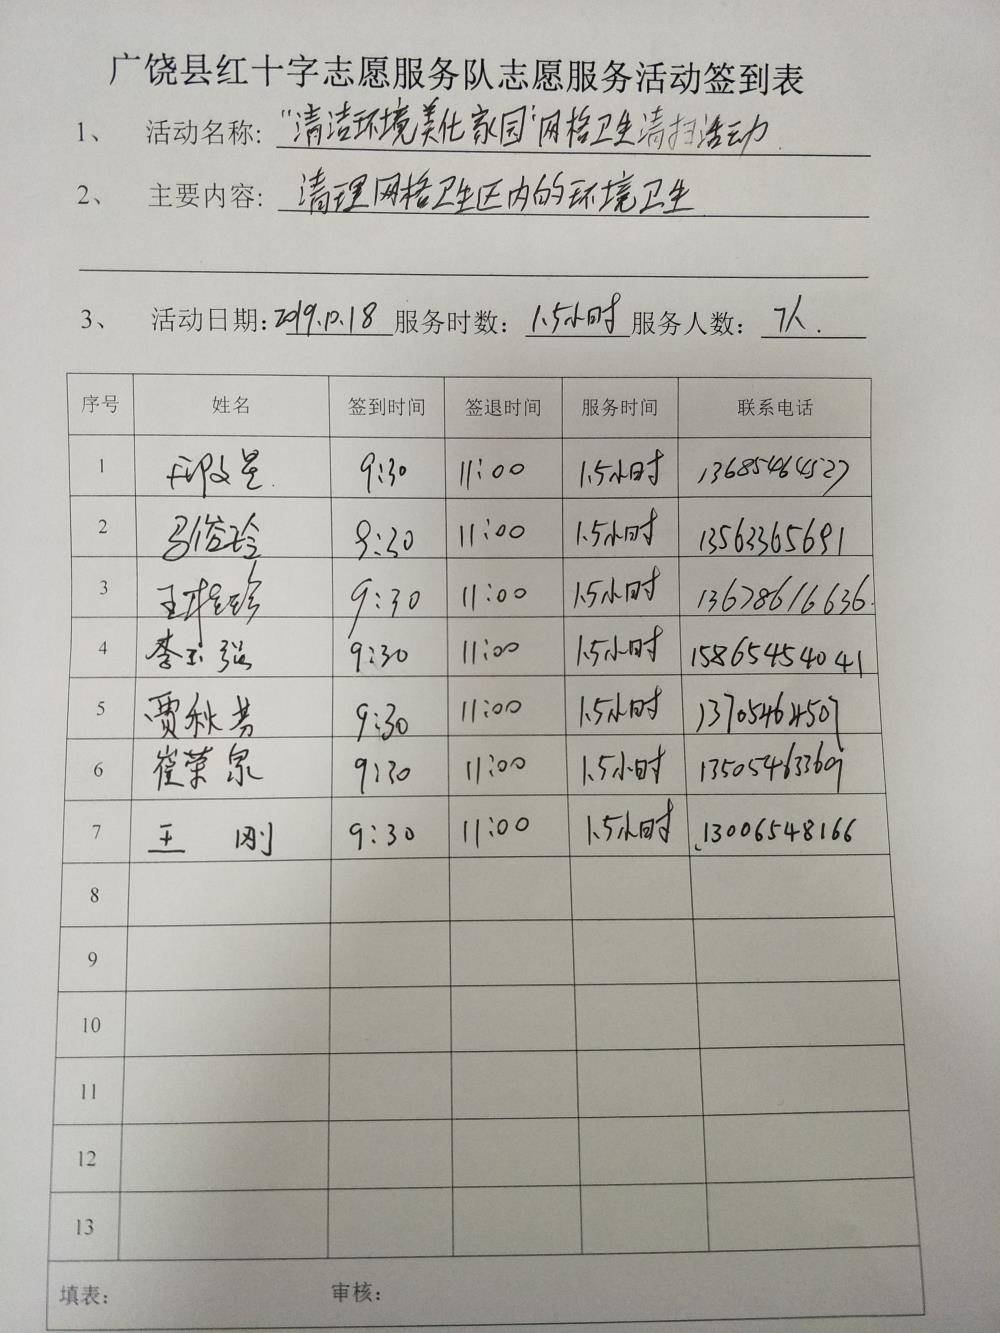 广饶县红十字志愿服务队志愿服务活动签到表
1、 活动名称: "清洁环境美化家园"网格卫生清扫活动
2、 主要内容: 清理网格卫生区内的环境卫生
3、 活动日期: 2019.10.18 服务时数: 1.5小时 服务人数: 7人.
序号 姓名 签到时间 签退时间 服务时间 联系电话
1 邱文星 9:30 11:00 1.5小时 13685464527
2 马俊玲 9:30 11:00 1.5小时 13563365691
3 王 珍 9:30 11:00 1.5小时 13678616636.
4 李玉强 9:30 11:00 1.5小时 15865454041
5 贾秋芳 9:30 11:00 1.5小时 13705464507
6 崔荣泉 9:30 11:00 1.5小时 13505463369
7 王 刚 9:30 11:00 1.5小时 13006548166
8
9
10
11
12
13
填表: 审核: